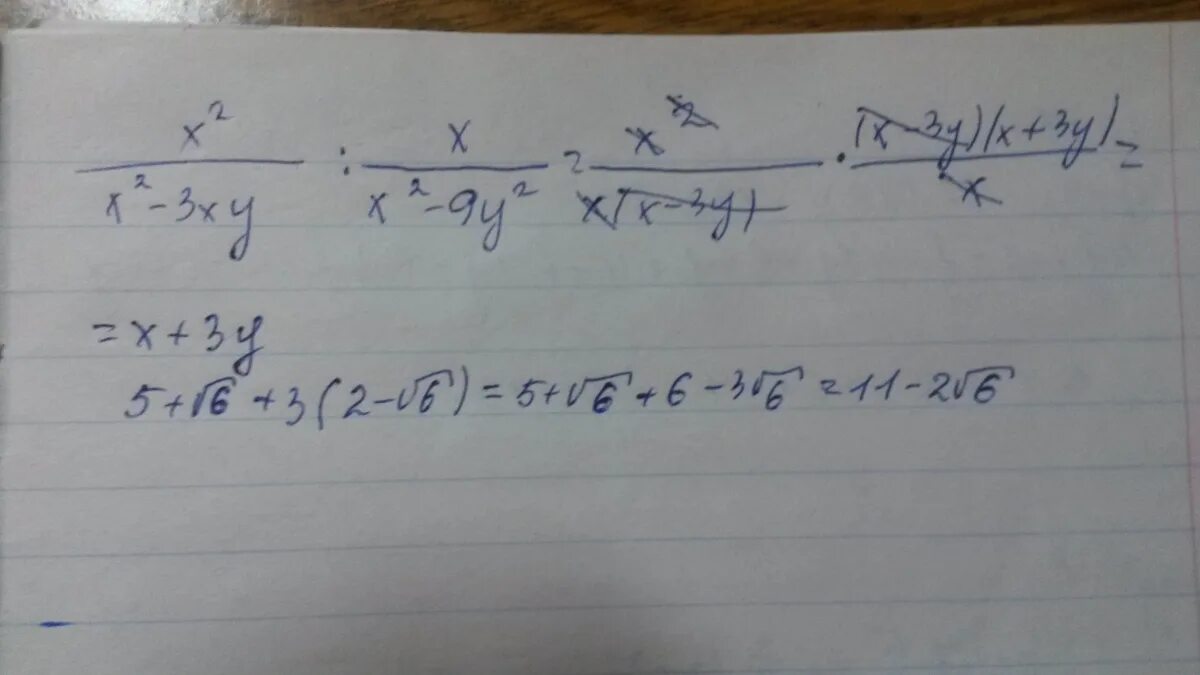 x²/(x²-3xy) : x/(x²-9y²) = x²/(x(x-3y)) · ((x-3y)(x+3y))/x =
= x+3y
5+√6+3(2-√6)=5+√6+6-3√6=11-2√6